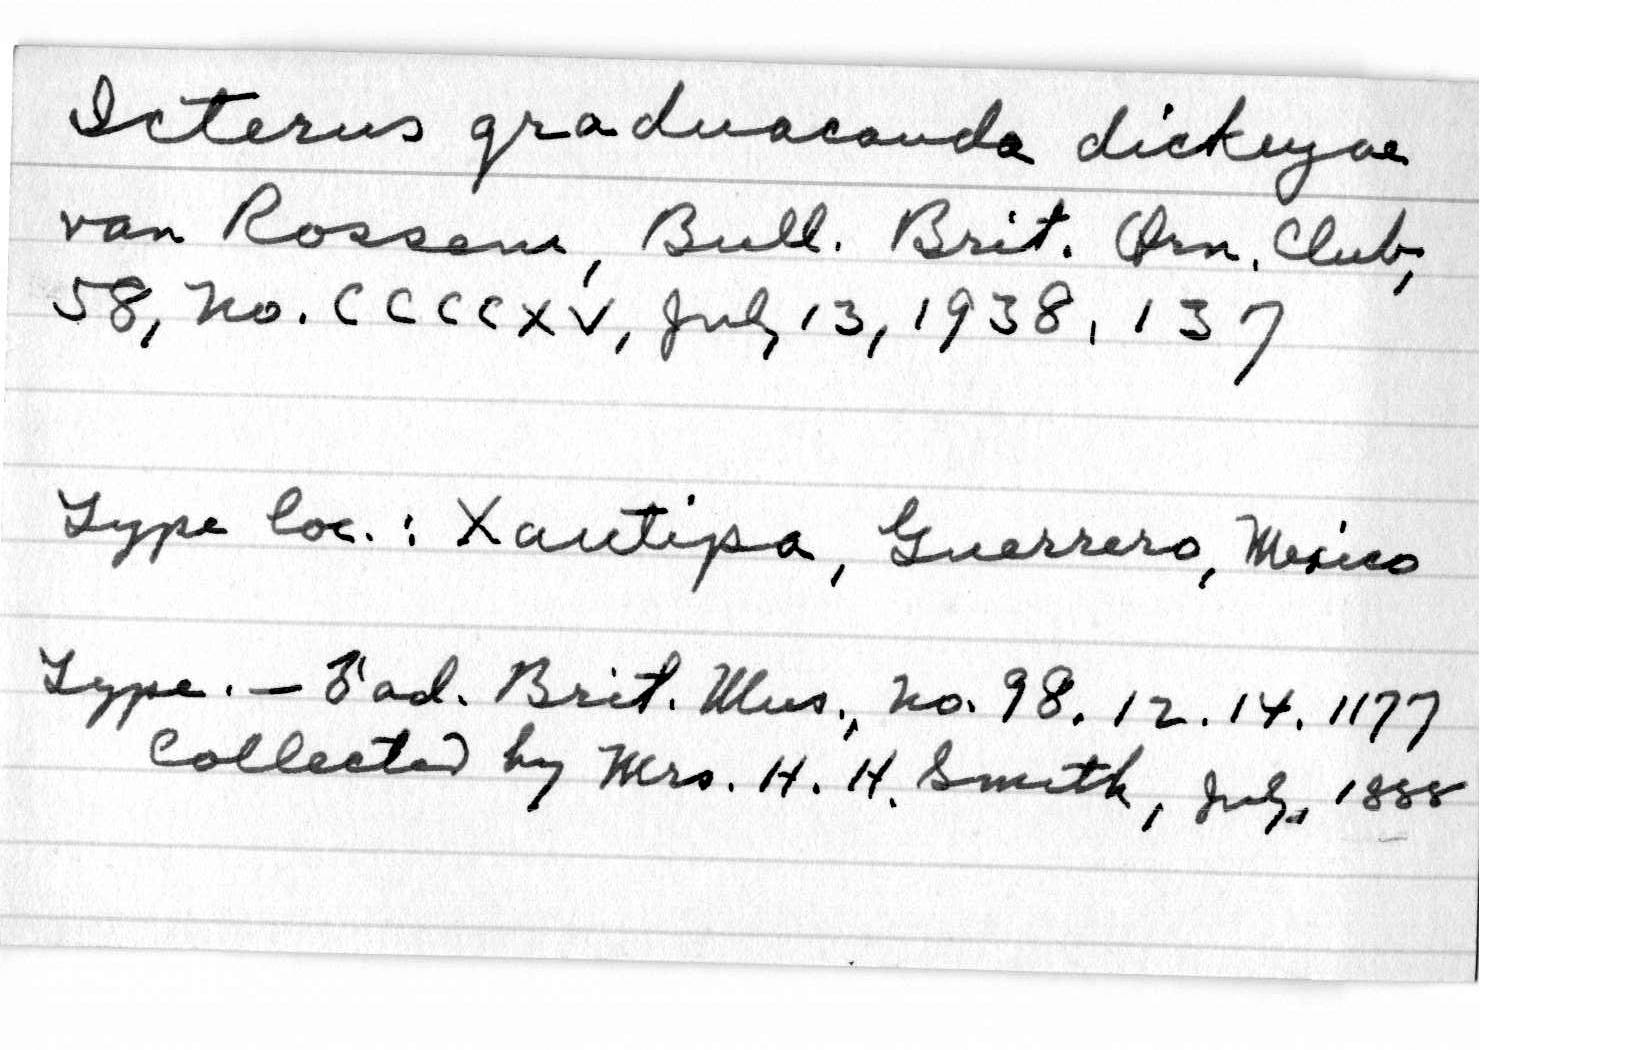 Icterus graduacauda dickeyae
van Rossem, Bull. Brit. Orn. Club,
58, No. CCCCXV, July 13, 1938, 137
Type loc.: Xautipa, Guerrero, Mexico
Type. — ♂ ad. Brit. Mus., No. 98.12.14.1177
Collected by Mrs. H. H. Smith, July, 1888